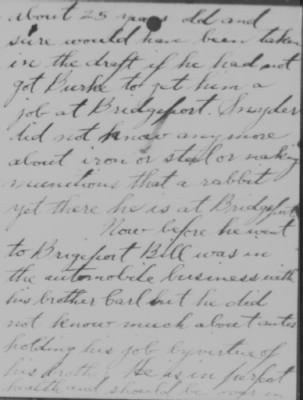 about 25 years old and
sure would have been taken
in the draft if he had not
got Burke to get him a
job at Bridgeport. Snyder
did not know any more
about iron or steel or making
munitions that a rabbit
yet there he is at Bridgeport
Now before he went
to Brigeport Bill was in
the automobile business with
his brother Carl but he did
not know much about autos
holding his job by virtue of
his brother. He is in perfect
health and should be over in